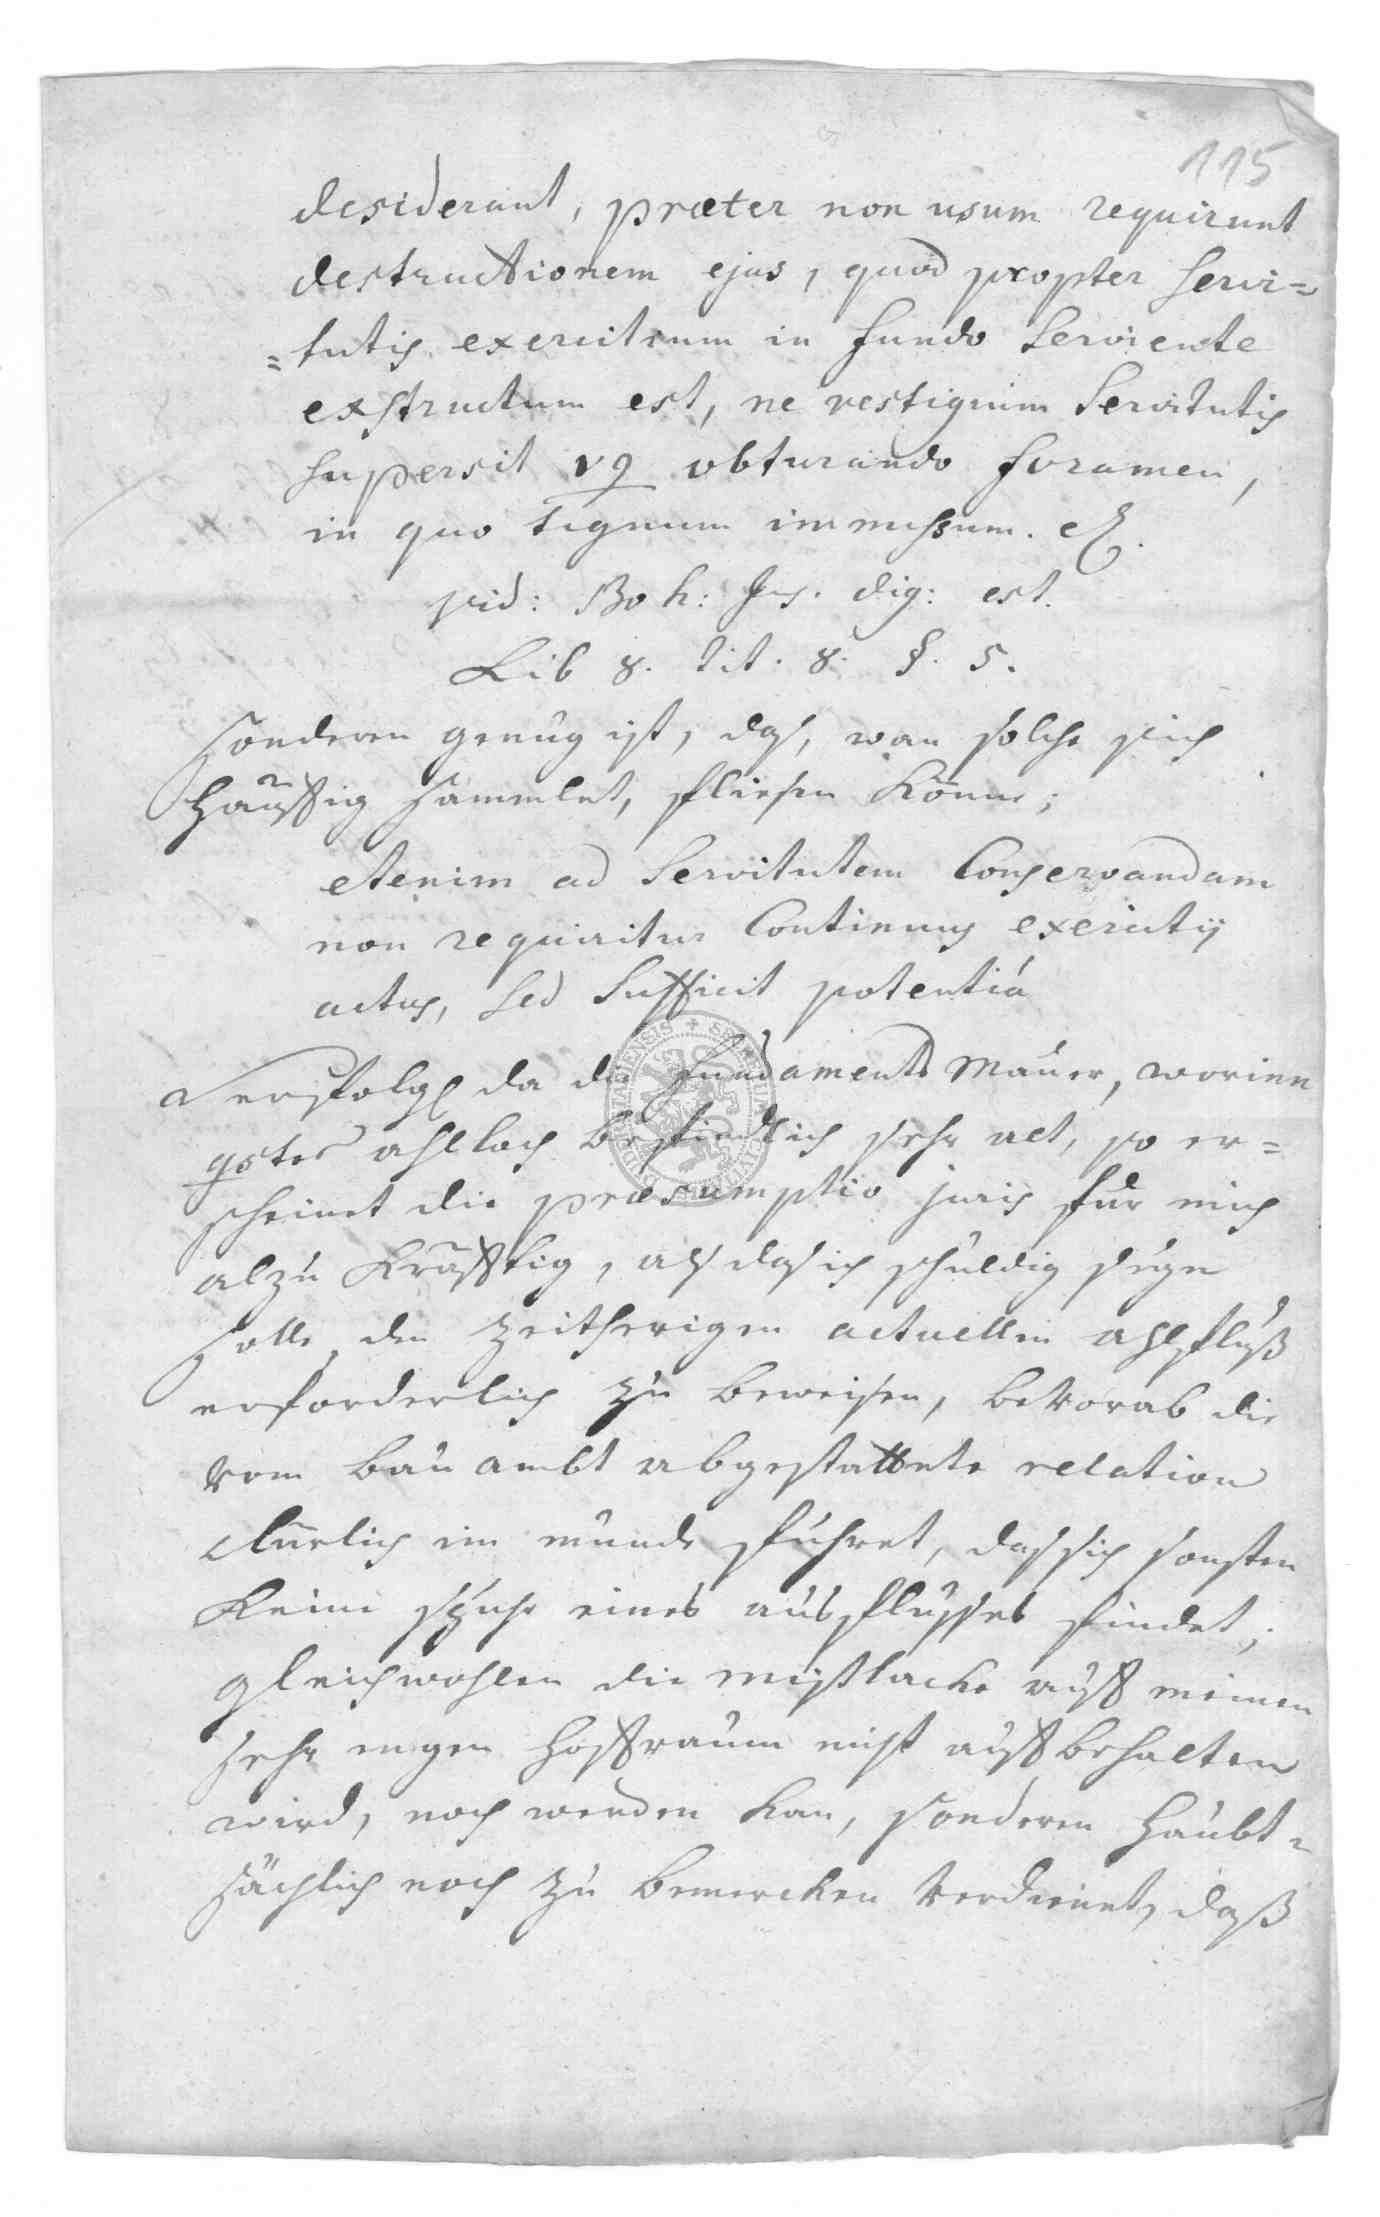 115
desiderant, præter non usum requirunt
destructionem ejus, quod propter servi=
=tutis exercitium in fundo serviente
exstructum est, ne vestigium servitutis
supersit vg obturando foramen,
in quo tignum immissum. etc.
vid: Boh: Jus. dig: est.
Lib 8. tit. 8. §. 5.
sonderen genug ist, das, wan solche sich
häuffig sammlet, fliesen könne;
etenim ad servitutem conservandam
non requiritur continuus exercitij
actus, sed sufficit potentiâ
verfolgl da die fundaments Mauer, worinn
gstes ahlloch befindlich sehr alt, so er=
scheinet die præsumptio juris für mich
alzu kräfftig, als das ich schuldig seyn
solle, den zeitherigen actuellen ahlfluß
erforderlich zu beweisen, bevorab die
vom bau ambt abgestattete relation
clärlich im munde führet, das sich sonsten
keine spuhr eines ausflusses findet,
gleichwohlen die mistlacke auff meinen
sehr engen hoffraum nicht auffbehalten
wird, noch werden kan, sonderen haubt=
sächlich noch zu bemercken verdienet, daß